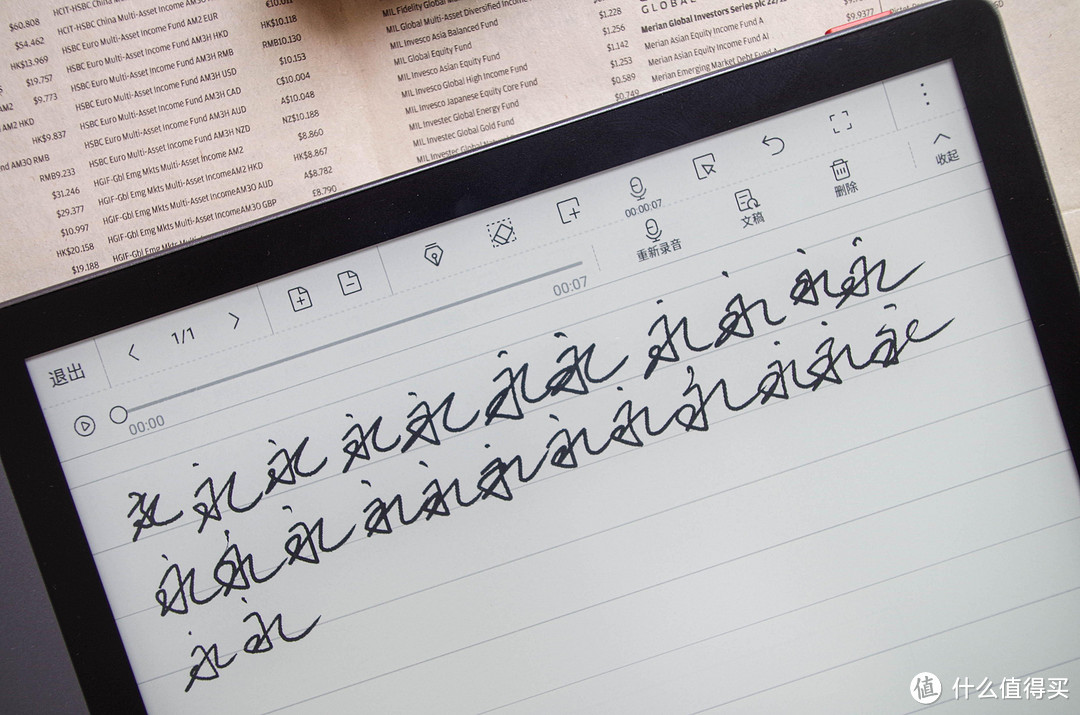 $60.808
$54.462
HK$13.969
$19.757
AM2 $9.773
AM2 HKD HK$9.837
AM30 RMB RMB9.233
$31.246
$29.377
$10.997
HK$20.158
$19.188
HCIT-HSBC China
HSBC Euro Multi-Asset Income Fund AM2 EUR
HSBC Euro Multi-Asset Income Fund AM3H HKD HK$10.118
HSBC Euro Multi-Asset Income Fund AM3H RMB RMB10.130
HSBC Euro Multi-Asset Income Fund AM3H USD $10.153
HSBC Euro Multi-Asset Income Fund AM3H CAD C$10.004
HSBC Euro Multi-Asset Income Fund AM3H AUD A$10.048
HSBC Euro Multi-Asset Income Fund AM3H NZD NZ$10.188
HGIF-Gbl Emg Mkts Multi-Asset Income AM2 $8.860
HGIF-Gbl Emg Mkts Multi-Asset IncomeAM2 HKD HK$8.867
HGIF-Gbl Emg Mkts Multi-Asset IncomeAM30 AUD A$8.782
HGIF-Gbl Emg Mkts Multi-Asset IncomeAM30 GBP £8.790
MIL Fidelity Global
MIL Global Multi-Asset Diversified Income
MIL Invesco Asia Balanced Fund $1.228
MIL Global Equity Fund $1.256
MIL Invesco Asian Equity Fund $1.142
MIL Invesco Global High Income Fund $1.253
MIL Invesco Japanese Equity Core Fund $0.589
MIL Investec Global Energy Fund $0.749
MIL Investec Global Gold Fund
MIL Investec Global
GLOBAL
Merian Global Investors Series plc
Merian Asian Equity Income Fund A
Merian Asian Equity Income Fund AI
Merian Emerging Market Debt Fund A
$9.9377
退出
1/1
00:00:07
收起
00:00
00:07
重新录音
文稿
删除
永永永永永永永永永永
永永永永永永永永永永永永
永永
值 什么值得买